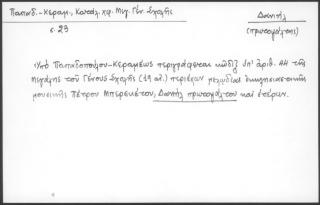 Παπαδ.-Κεραμ., Κατάλ. χφ. Μεγ. Γέν. Σχολῆς
Δανιὴλ
σ. 23
(πρωτοψάλτης)
Ὑπὸ Παπαδοπούλου-Κεραμέως περιγράφεται κῶδιξ ὑπ' ἀριθ. 44 τῆς
Μεγάλης τοῦ Γένους Σχολῆς (19 αἰ.) περιέχων μελῳδίας ἐκκλησιαστικῆς
μουσικῆς Πέτρου Μπερεκέτου, Δανιὴλ πρωτοψάλτου καὶ ἑτέρων.